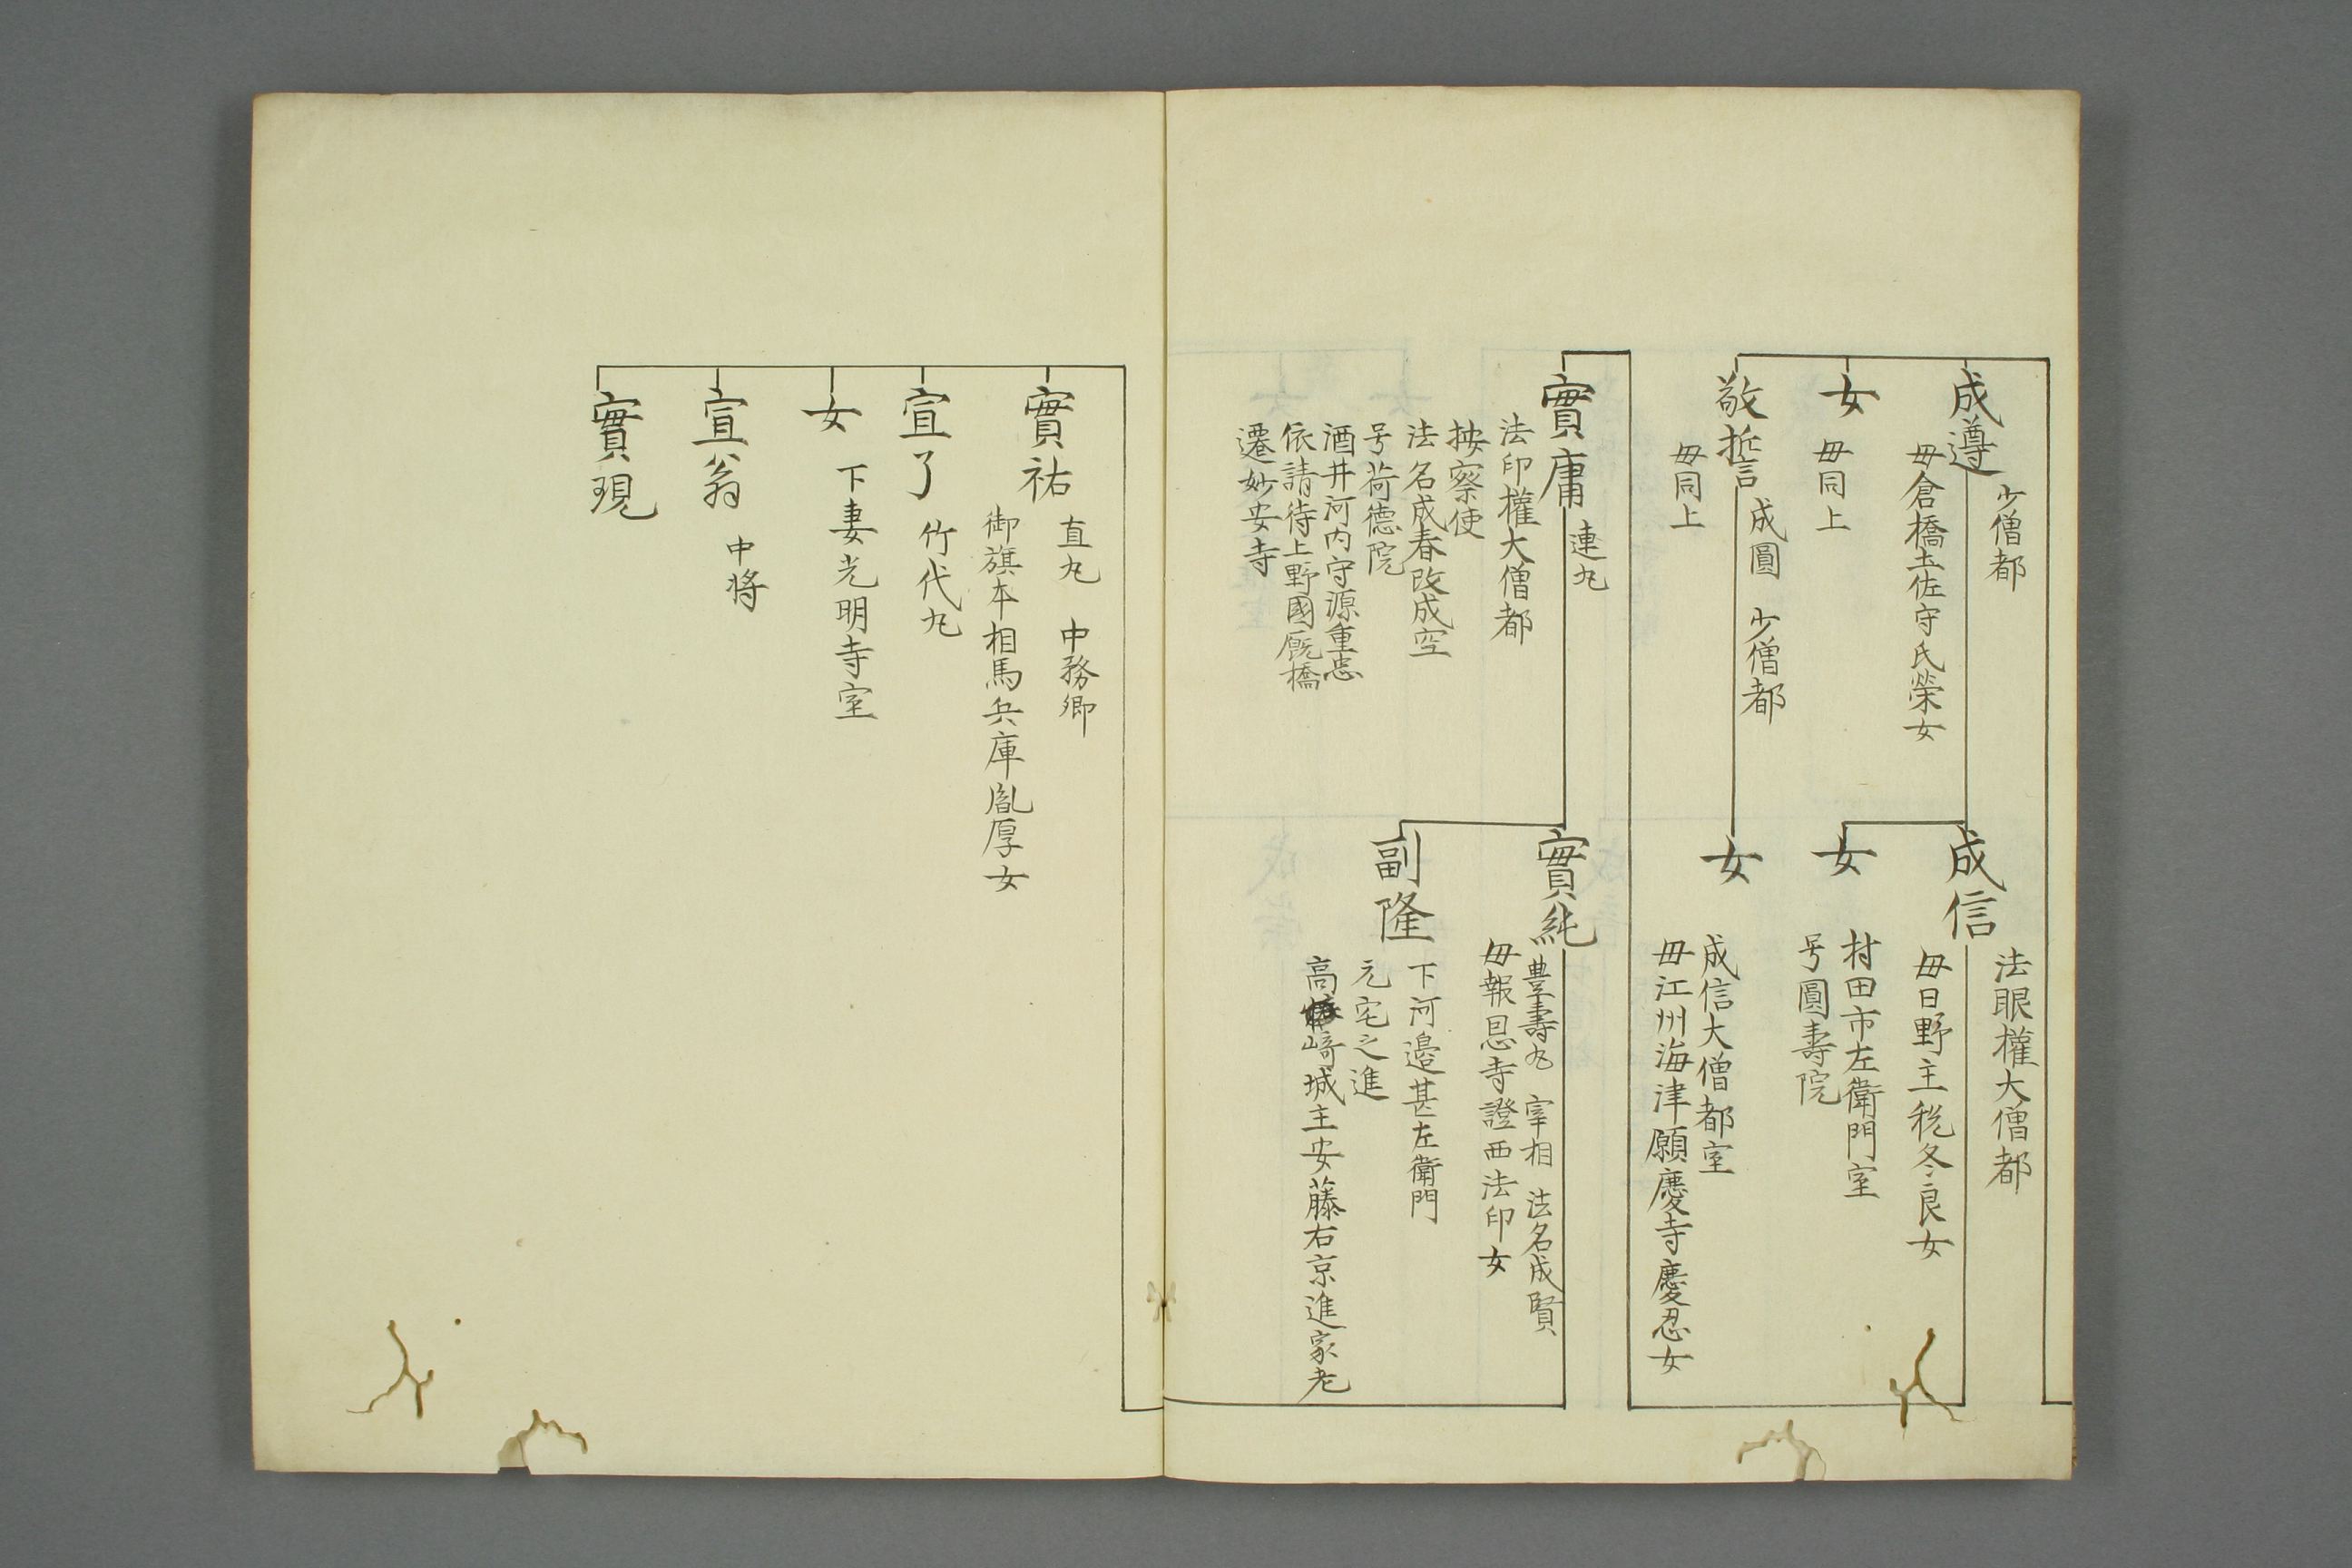 成遵
少僧都
毋倉橋土佐守氏榮女
女
毋同上
敬誓
成圓 少僧都
毋同上
成信
法眼權大僧都
毋日野主税冬良女
女
村田市左衛門室
号圓壽院
女
成信大僧都室
毋江州海津願慶寺慶忍女
實庸
連丸
法印權大僧都
按察使
法名成春改成空
号荷德院
酒井河内守源重忠
依請待上野國厩橋
遷妙安寺
實純
豊壽丸 宰相 法名成賢
毋報恩寺證西法印女
副隆
下河邉甚左衛門
元宅之進
高﨑城主安藤右京進家老
實祐
直丸 中務卿
御旗本相馬兵庫胤厚女
宣了
竹代丸
女
下妻光明寺室
宣翁
中将
實現